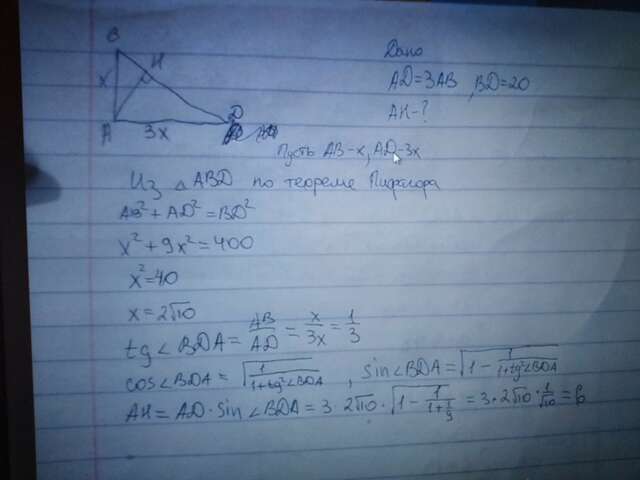 B
H
x
A
3x
D
Дано
AD=3AB, BD=20
AH-?
Пусть AB-x, AD-3x
Из △ABD по теореме Пифагора
AB²+AD²=BD²
x²+9x²=400
x²=40
x=2√10
tg∠BDA=AB/AD=x/3x=1/3
cos∠BDA=√(1/(1+tg²∠BDA)), sin∠BDA=√(1-1/(1+tg²∠BDA))
AH=AD·sin∠BDA=3·2√10·√(1-1/(1+1/9))=3·2√10·1/√10=6